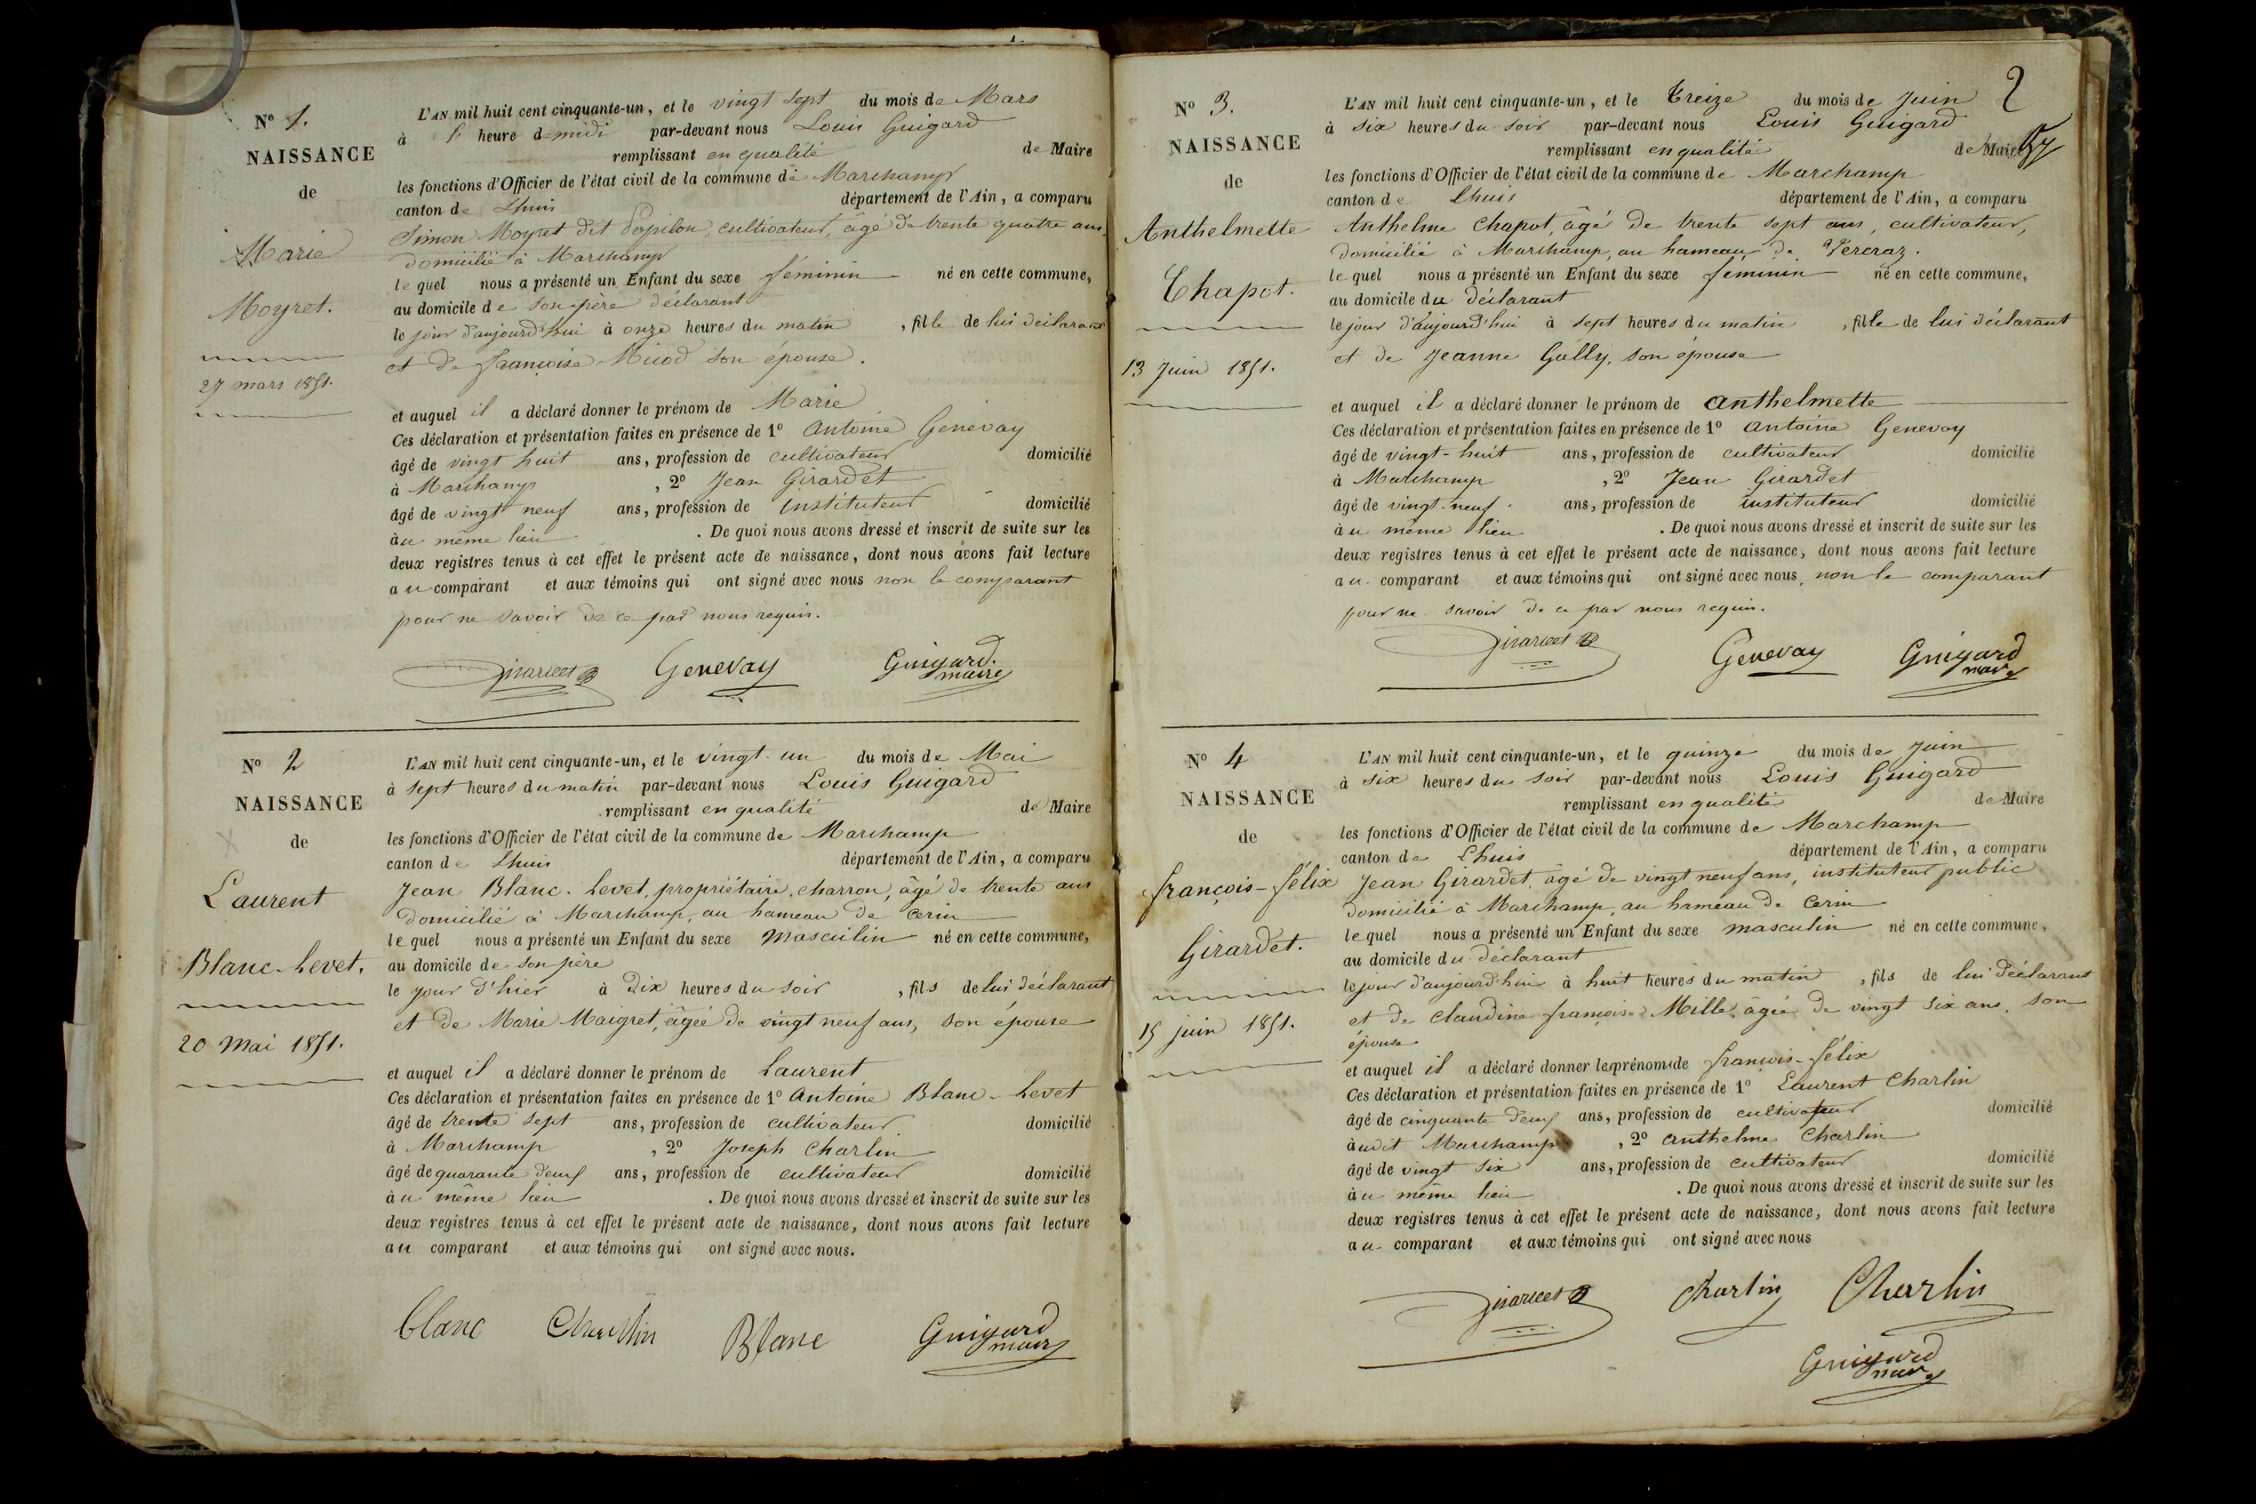 N° 1.
NAISSANCE
de
Marie
Moyret.
27 mars 1851.
L'AN mil huit cent cinquante-un, et le vingt sept du mois de Mars
à heure de midi par-devant nous Louis Guigard
remplissant en qualité de Maire
les fonctions d'Officier de l'état civil de la commune de Marchamp
canton de Lhuis département de l'Ain, a comparu
Simon Moyret dit Papilon, cultivateur, âgé de trente quatre ans,
domicilié à Marchamp
le quel nous a présenté un Enfant du sexe féminin né en cette commune,
au domicile de son père déclarant
le jour d'aujourd'hui à onze heures du matin, fille de lui déclarant
et de françoise Micod son épouse.
et auquel il a déclaré donner le prénom de Marie
Ces déclaration et présentation faites en présence de 1° Antoine Genevay
âgé de vingt huit ans, profession de cultivateur domicilié
à Marchamp, 2° Jean Girardet
âgé de vingt neuf ans, profession de instituteur domicilié
au même lieu. De quoi nous avons dressé et inscrit de suite sur les
deux registres tenus à cet effet le présent acte de naissance, dont nous avons fait lecture
au comparant et aux témoins qui ont signé avec nous non le comparant
pour ne savoir de ce par nous requis.
Girardet Genevay Guigard
maire
N° 2
NAISSANCE
de
Laurent
Blanc-Levet.
20 Mai 1851.
L'AN mil huit cent cinquante-un, et le vingt-un du mois de Mai
à sept heures du matin par-devant nous Louis Guigard
remplissant en qualité de Maire
les fonctions d'Officier de l'état civil de la commune de Marchamp
canton de Lhuis département de l'Ain, a comparu
Jean Blanc-Levet, propriétaire, charron, âgé de trente ans
domicilié à Marchamp, au hameau de Cerin
le quel nous a présenté un Enfant du sexe masculin né en cette commune,
au domicile de son père
le jour d'hier à dix heures du soir, fils de lui déclarant
et de Marie Maigret, âgée de vingt neuf ans, son épouse
et auquel il a déclaré donner le prénom de Laurent
Ces déclaration et présentation faites en présence de 1° Antoine Blanc-Levet
âgé de trente sept ans, profession de cultivateur domicilié
à Marchamp, 2° Joseph Charlin
âgé de quarante deux ans, profession de cultivateur domicilié
au même lieu. De quoi nous avons dressé et inscrit de suite sur les
deux registres tenus à cet effet le présent acte de naissance, dont nous avons fait lecture
au comparant et aux témoins qui ont signé avec nous.
blanc Charlin Blanc Guigard
maire
2
N° 3.
NAISSANCE
de
Anthelmette
Chapot.
13 Juin 1851.
L'AN mil huit cent cinquante-un, et le treize du mois de Juin
à six heures du soir par-devant nous Louis Guigard
remplissant en qualité de Maire
les fonctions d'Officier de l'état civil de la commune de Marchamp
canton de Lhuis département de l'Ain, a comparu
Anthelme Chapot, âgé de trente sept ans, cultivateur,
domicilié à Marchamp, au hameau de Vercraz.
le quel nous a présenté un Enfant du sexe féminin né en cette commune,
au domicile du déclarant
le jour d'aujourd'hui à sept heures du matin, fille de lui déclarant
et de Jeanne Gally, son épouse
et auquel il a déclaré donner le prénom de Anthelmette
Ces déclaration et présentation faites en présence de 1° Antoine Genevay
âgé de vingt-huit ans, profession de cultivateur domicilié
à Marchamp, 2° Jean Girardet
âgé de vingt-neuf ans, profession de instituteur domicilié
au même lieu. De quoi nous avons dressé et inscrit de suite sur les
deux registres tenus à cet effet le présent acte de naissance, dont nous avons fait lecture
au comparant et aux témoins qui ont signé avec nous, non le comparant
pour ne savoir de ce par nous requis.
Girardet Genevay Guigard
maire
N° 4
NAISSANCE
de
françois-félix
Girardet.
15 juin 1851.
L'AN mil huit cent cinquante-un, et le quinze du mois de Juin
à six heures du soir par-devant nous Louis Guigard
remplissant en qualité de Maire
les fonctions d'Officier de l'état civil de la commune de Marchamp
canton de Lhuis département de l'Ain, a comparu
Jean Girardet, âgé de vingt neuf ans, instituteur public
domicilié à Marchamp, au hameau de Cerin
le quel nous a présenté un Enfant du sexe masculin né en cette commune,
au domicile du déclarant
le jour d'aujourd'hui à huit heures du matin, fils de lui déclarant
et de Claudine françoise Mille, âgée de vingt six ans, son
épouse
et auquel il a déclaré donner les prénoms de françois-félix
Ces déclaration et présentation faites en présence de 1° Laurent Charlin
âgé de cinquante deux ans, profession de cultivateur domicilié
audit Marchamp, 2° Anthelme Charlin
âgé de vingt six ans, profession de cultivateur domicilié
au même lieu. De quoi nous avons dressé et inscrit de suite sur les
deux registres tenus à cet effet le présent acte de naissance, dont nous avons fait lecture
au comparant et aux témoins qui ont signé avec nous
Girardet Charlin Charlin
Guigard
maire